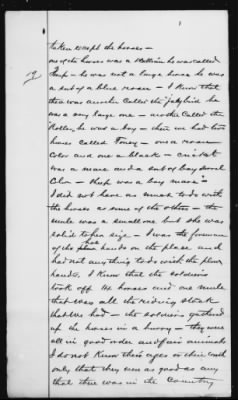 taken except the horses —
one of the horses was a stallion he was called
he was not a large horse he was
a sort of a blue roan — I know that
there was another called the "Jaybird he
was a very large one — another called the
Roller, he was a bay — then we had two
horses called Poney — one a roan
color and one a black —
was a mare and a sort of bay sorrel
Color — was a bay mare"
I did not have as much to do with
the horses as some of the others — the
mule was a small one but she was
solid to her size — I was the foreman
of the hoe hands on the place and
had not anything to do with the plow
hands. I know that the soldiers
took off 14 horses and one mule
that was all the riding stock
that Mrs had — the soldiers gathered
up the horses in a hurry — they were
all in good order and fair animals
I do not know their ages or their worth
only that they were as good as any
that there was in the Country